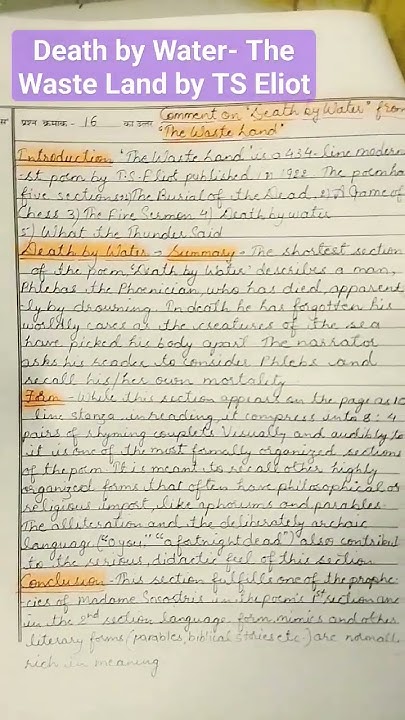 Death by Water- The
Waste Land by TS Eliot
प्रश्न क्रमांक - 16 का उत्तर
Comment on "Death by Water" from
"The Waste Land"
Introduction 'The Waste Land' is a 434-line modern-
st poem by T.S. Eliot published in 1922. The poem has
five sections 1) The Burial of the Dead 2) A Game of
Chess 3) The Fire Sermon 4) Death by water
5) What the Thunder Said
Death by Water - Summary - The shortest section
of the poem 'Death by Water' describes a man,
Phlebas the Phoenician, who has died, apparent
ly by drowning. In death he has forgotten his
worldly cares as the creatures of the sea
have picked his body apart. The narrator
asks his reader to consider Phlebs and
recall his/her own mortality.
Form - While this section appears on the page as 10
line stanza in reading, it compress into 8 : 4
pairs of rhyming couplets Visually and audibly so
it is one of the most formally organized sections
of the poem It is meant to recall other highly
organized forms that often have philosophical or
religious import, like aphorisms and parables.
The alliteration and the deliberately archaic
language ("o you," "a fortnight dead") also contribut
to the serious, didactic feel of this section
Conclusion - This section fulfills one of the prophe-
cies of Madame Sosostris in the poem's 1st section and
in the 2nd section language form, mimics and other
literary forms (parables, biblical stories etc.) are normall
rich in meaning